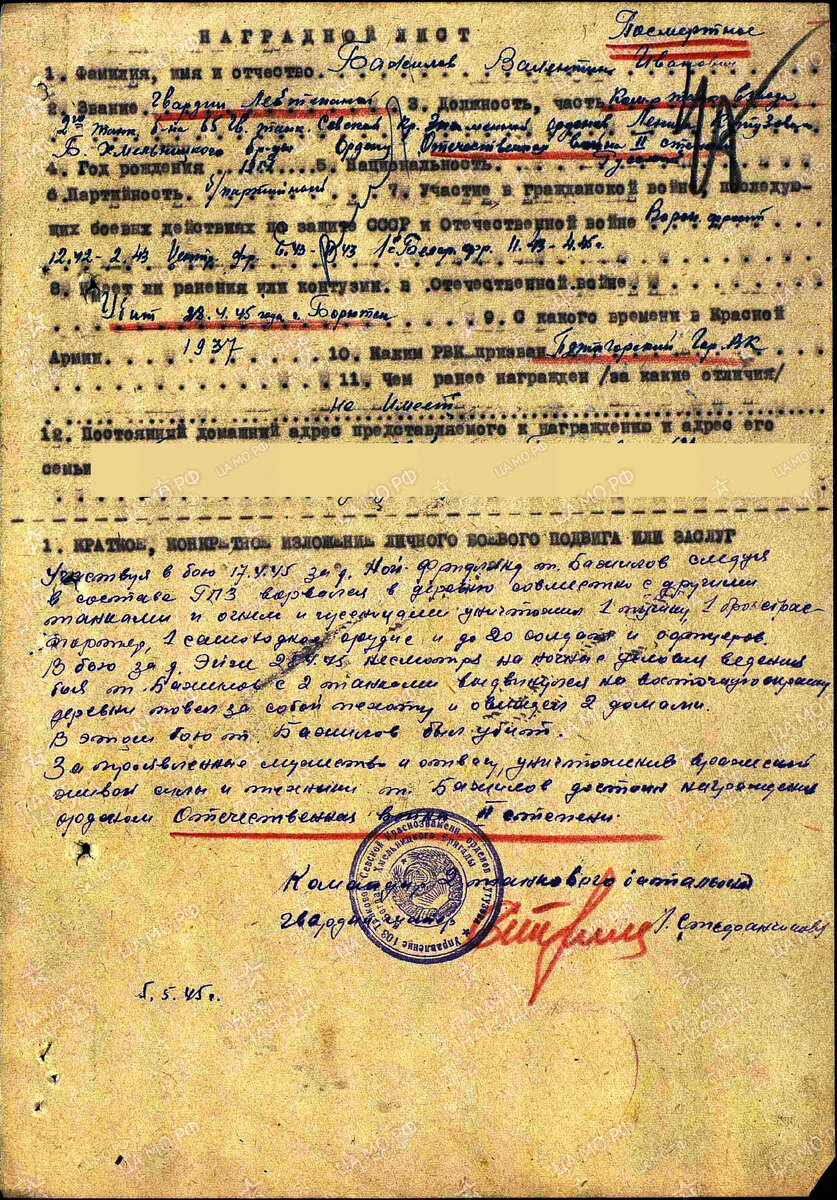 Посмертное
НАГРАДНОЙ ЛИСТ
1. Фамилия, имя и отчество Бажилов Валентин Иванович
2. Звание Гвардии Лейтенант 3. Должность, часть Ком-р танк. взвода
2го танк. б-на 65 Гв. танк. Севской кр. Знаменной орденов Ленина Кутузова
Б. Хмельницкого бр-ды Ордену Отечественная война II степ
4. Год рождения 5. Национальность Русский
6. Партийность б/партийный 7. Участие в Гражданской войне, последую-
щих боевых действиях по защите СССР и Отечественной войне Ворон. фронт
12.42-2.43 Центр. фр. 43 1й Белор. фр. 11.43-4.45г.
8. Имеет ли ранения или контузии в Отечественной войне.
Убит 4.45 года г.
9. С какого времени в Красной
Армии 1937 10. Каким РВК призван Пятигорский Гор. ВК
11. Чем ранее награжден /за какие отличия/
не имеет
12. Постоянный домашний адрес представляемого к награждению и адрес его
семьи
1. КРАТКОЕ, КОНКРЕТНОЕ ИЗЛОЖЕНИЕ ЛИЧНОГО БОЕВОГО ПОДВИГА ИЛИ ЗАСЛУГ
Участвуя в бою 17.4.45 за д. Ной-Фридланд т. Бажилов следуя
в составе ГПЗ ворвался в деревню совместно с другими
танками и огнем и гусеницами уничтожил 1 пушку, 1 бронетранс-
портер, 1 самоходное орудие и до 20 солдат и офицеров.
В бою за д. 4.45 несмотря на ночные условия ведения
боя т. Бажилов с 2 танками выдвинулся на восточную окраину
деревни повел за собой пехоту и овладел 2 домами.
В этом бою т. Бажилов был убит.
За проявленные мужество и отвагу, уничтожение вражеской
живой силы и техники т. Бажилов достоин награждения
орденом Отечественная война II степени.
Командир 2 танкового батальона
Гвардии майор
5.5.45г.